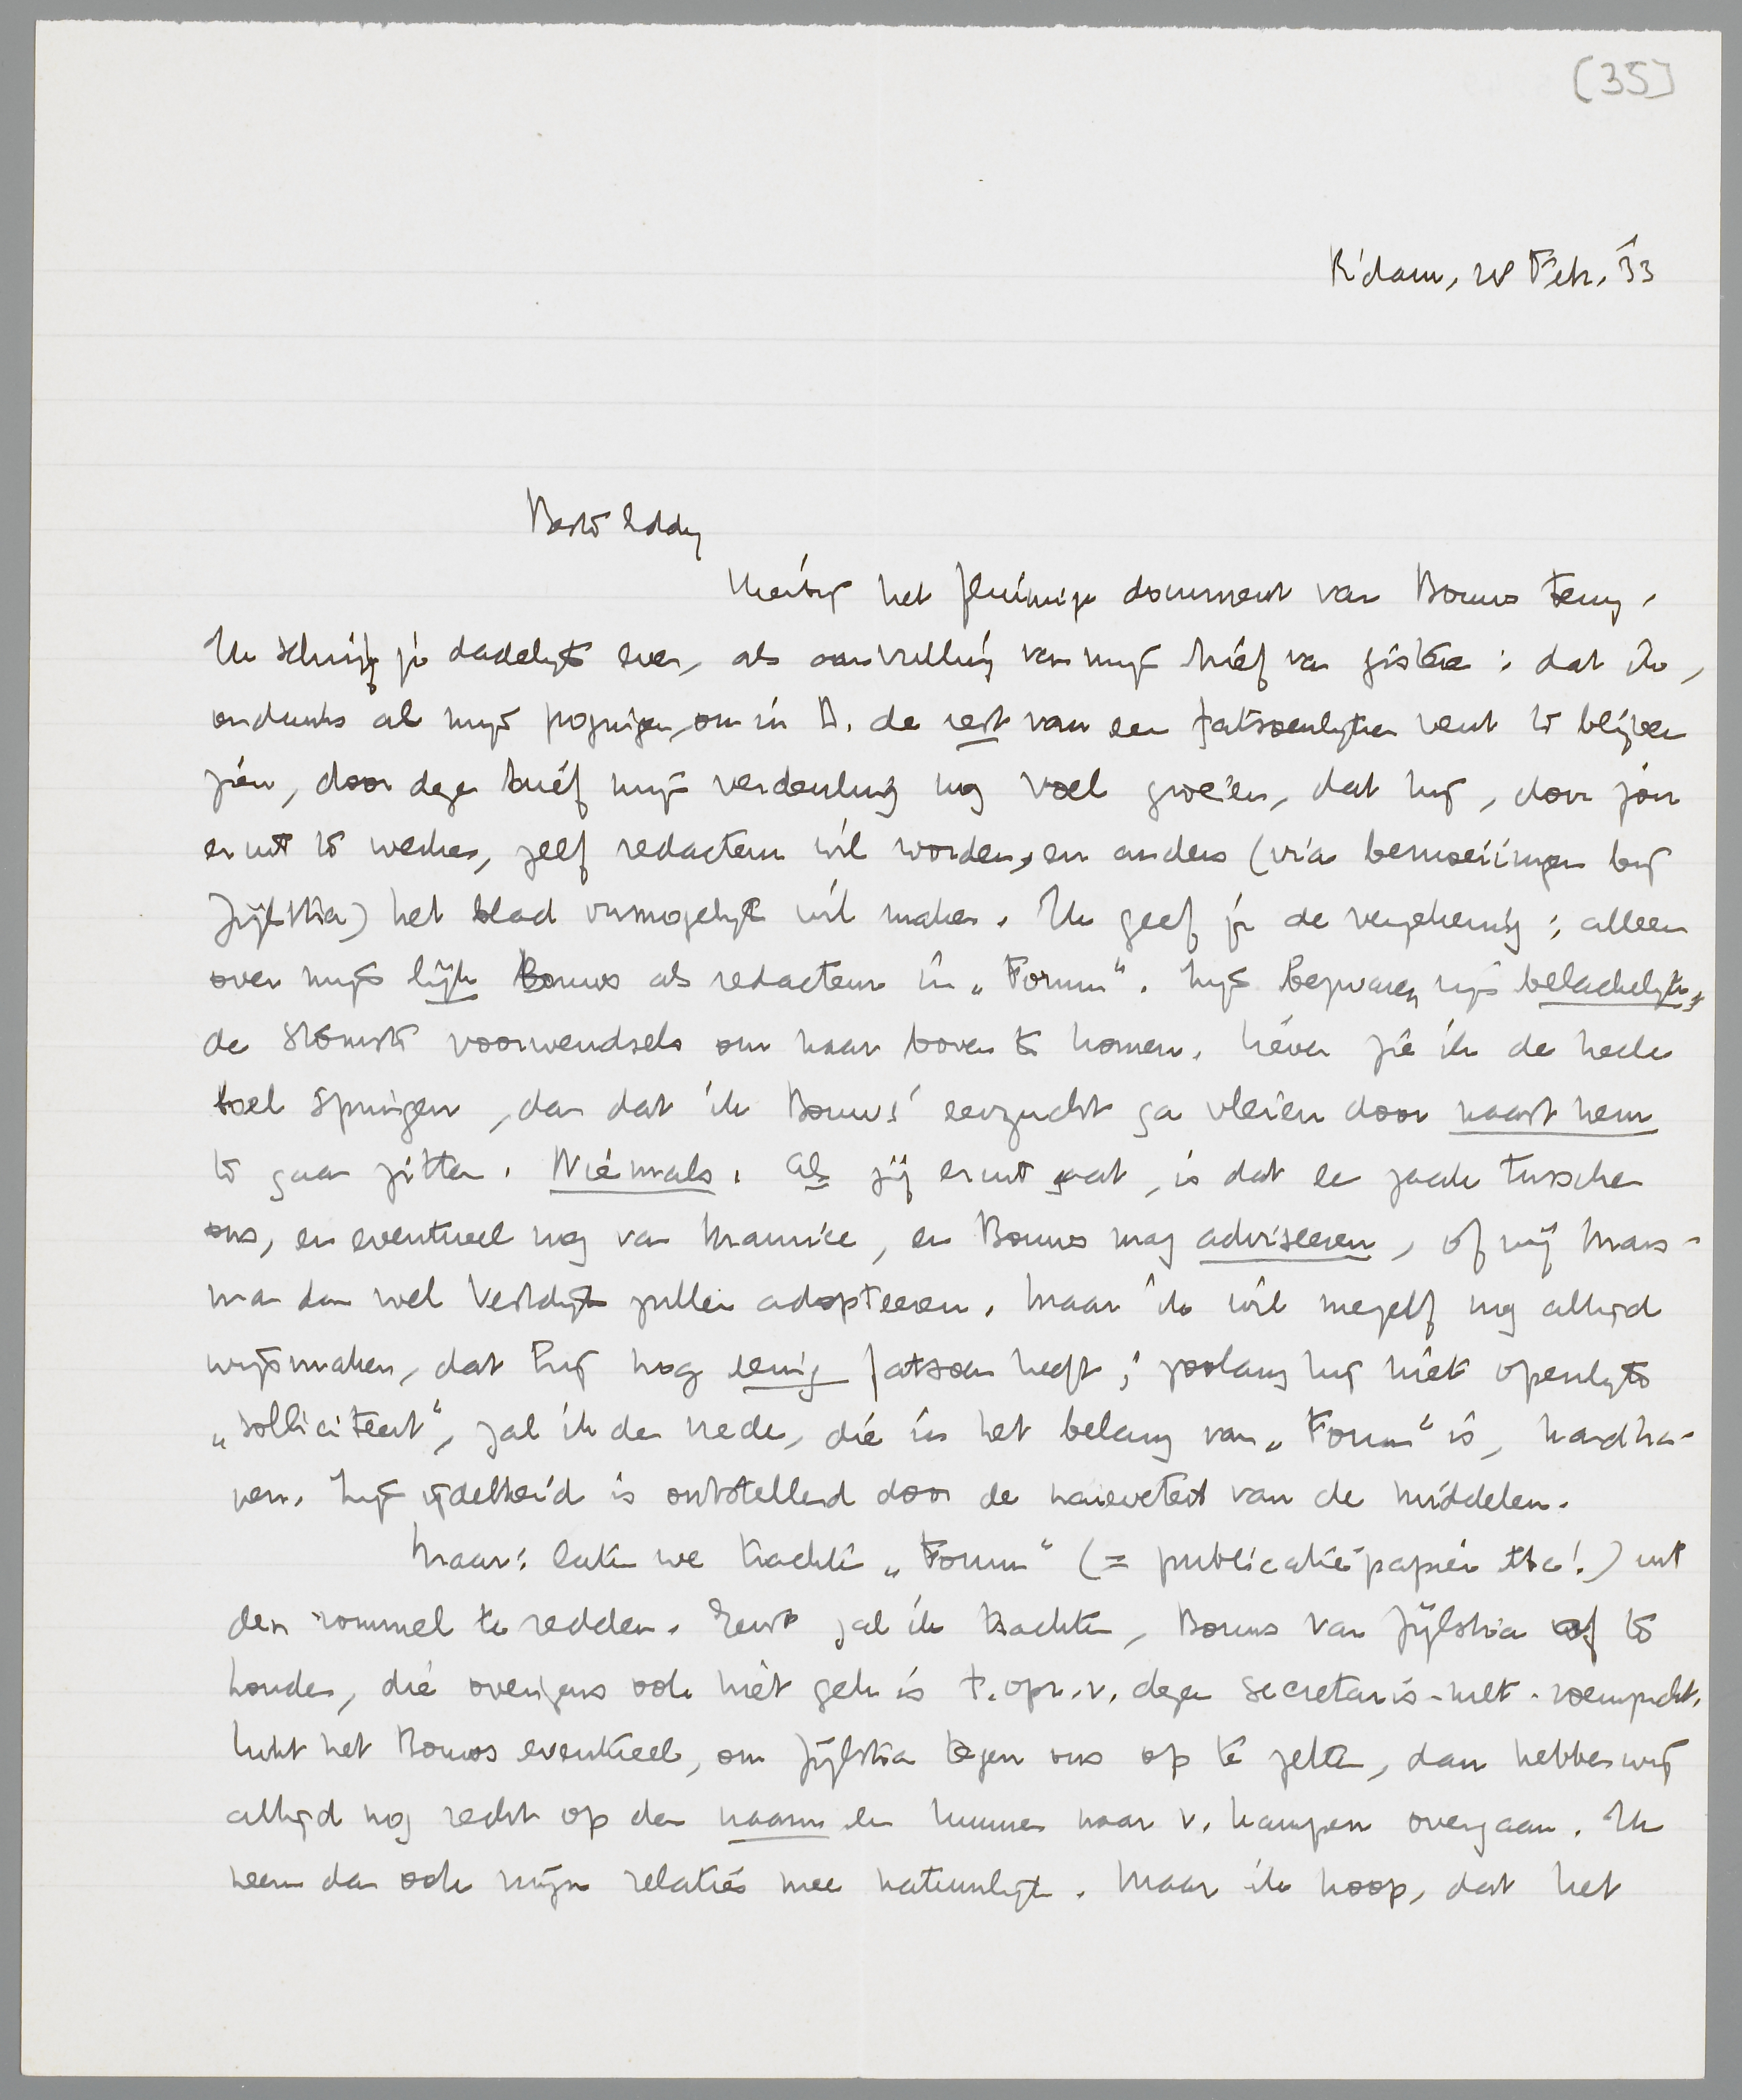 [35]
R'dam, 28 Febr. '33
Beste Eddy
Hierbij het fluimige document van Bouws terug.
Ik schrijf je dadelijk even, als aanvulling van mijn brief van gisteren: dat ik,
ondanks al mijn pogingen, om in B. de rest van een fatsoenlijken vent te blijven
zien, door dezen brief mijn verdenking nog voel groeien, dat hij, door jou
eruit te werken, zelf redacteur wil worden, en anders (via bemoeiingen bij
Zijlstra) het blad onmogelijk wil maken. Ik geef je de verzekering: alleen
over mijn lijk Bouws als redacteur in „Forum". Zijn bezwaren zijn belachelijk,
de stomste voorwendsels om naar boven te komen. Liever zie ik de heele
boel springen, dan dat ik Bouws' eerzucht ga vleien door naast hem
te gaan zitten. Niemals. Als jij eruit gaat, is dat een zaak tusschen
ons, en eventueel nog van Maurice, en Bouws mag adviseeren, of wij Mars-
man dan wel Vestdijk zullen adopteeren. Maar ik wil mezelf nog altijd
wijsmaken, dat hij nog eenig fatsoen heeft; zoolang hij niet openlijk
„solliciteert", zal ik de vrede, die in het belang van „Forum" is, handha-
ven. Zijn ijdelheid is ontstellend door de naieveteit van de middelen.
Maar: laten we trachten „Forum" (= publicatiepapier etc!) uit
den rommel te redden. Eerst zal ik trachten, Bouws van Zijlstra af te
houden, die overigens ook niet gek is t.opz.v. dezen secretaris-met-roemzucht.
Lukt het Bouws eventueel, om Zijlstra tegen ons op te zetten, dan hebben wij
altijd nog recht op den naam en kunnen naar v. Kampen overgaan. Ik
neem dan ook mijn relaties mee natuurlijk. Maar ik hoop, dat het